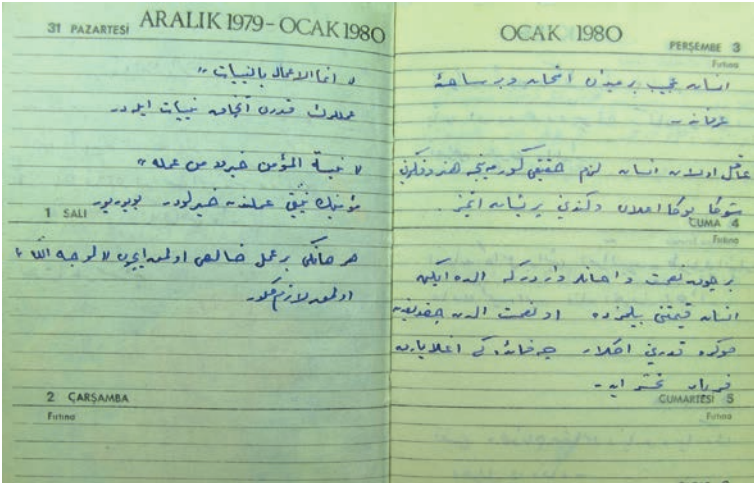 31 PAZARTESİ ARALIK 1979 - OCAK 1980
« انما الاعمال بالنيات »
عمللرك قدرى آنجاق نيات ايله در
« نية المؤمن خير من عمله »
مؤمنك نيتى عملندن خيرلودر بويوريور
1 SALI
هر هانكى بر عمل خالص اولمه ايچون لا لوجه الله »
اولمه لازم كلور
2 ÇARŞAMBA
Fırtına
OCAK 1980
PERŞEMBE 3
Fırtına
انسان عجيب بر ميدان امتحان وبر ساحهٔ
عرفاندر
عاقل اولان انسان لزوم حقيقى كورمينجه هنر وفكرنى
شوكا بوكا اعلان وكندنى پريشان ايتمز .
CUMA 4
Fırtına
بر چوق نعمت واحسان واردركه الده ايكن
انسان قيمتنى بيلمز ده او نعمت الدن
صوكره قدرينى اكلار
فرياد
CUMARTESİ 5
Fırtına